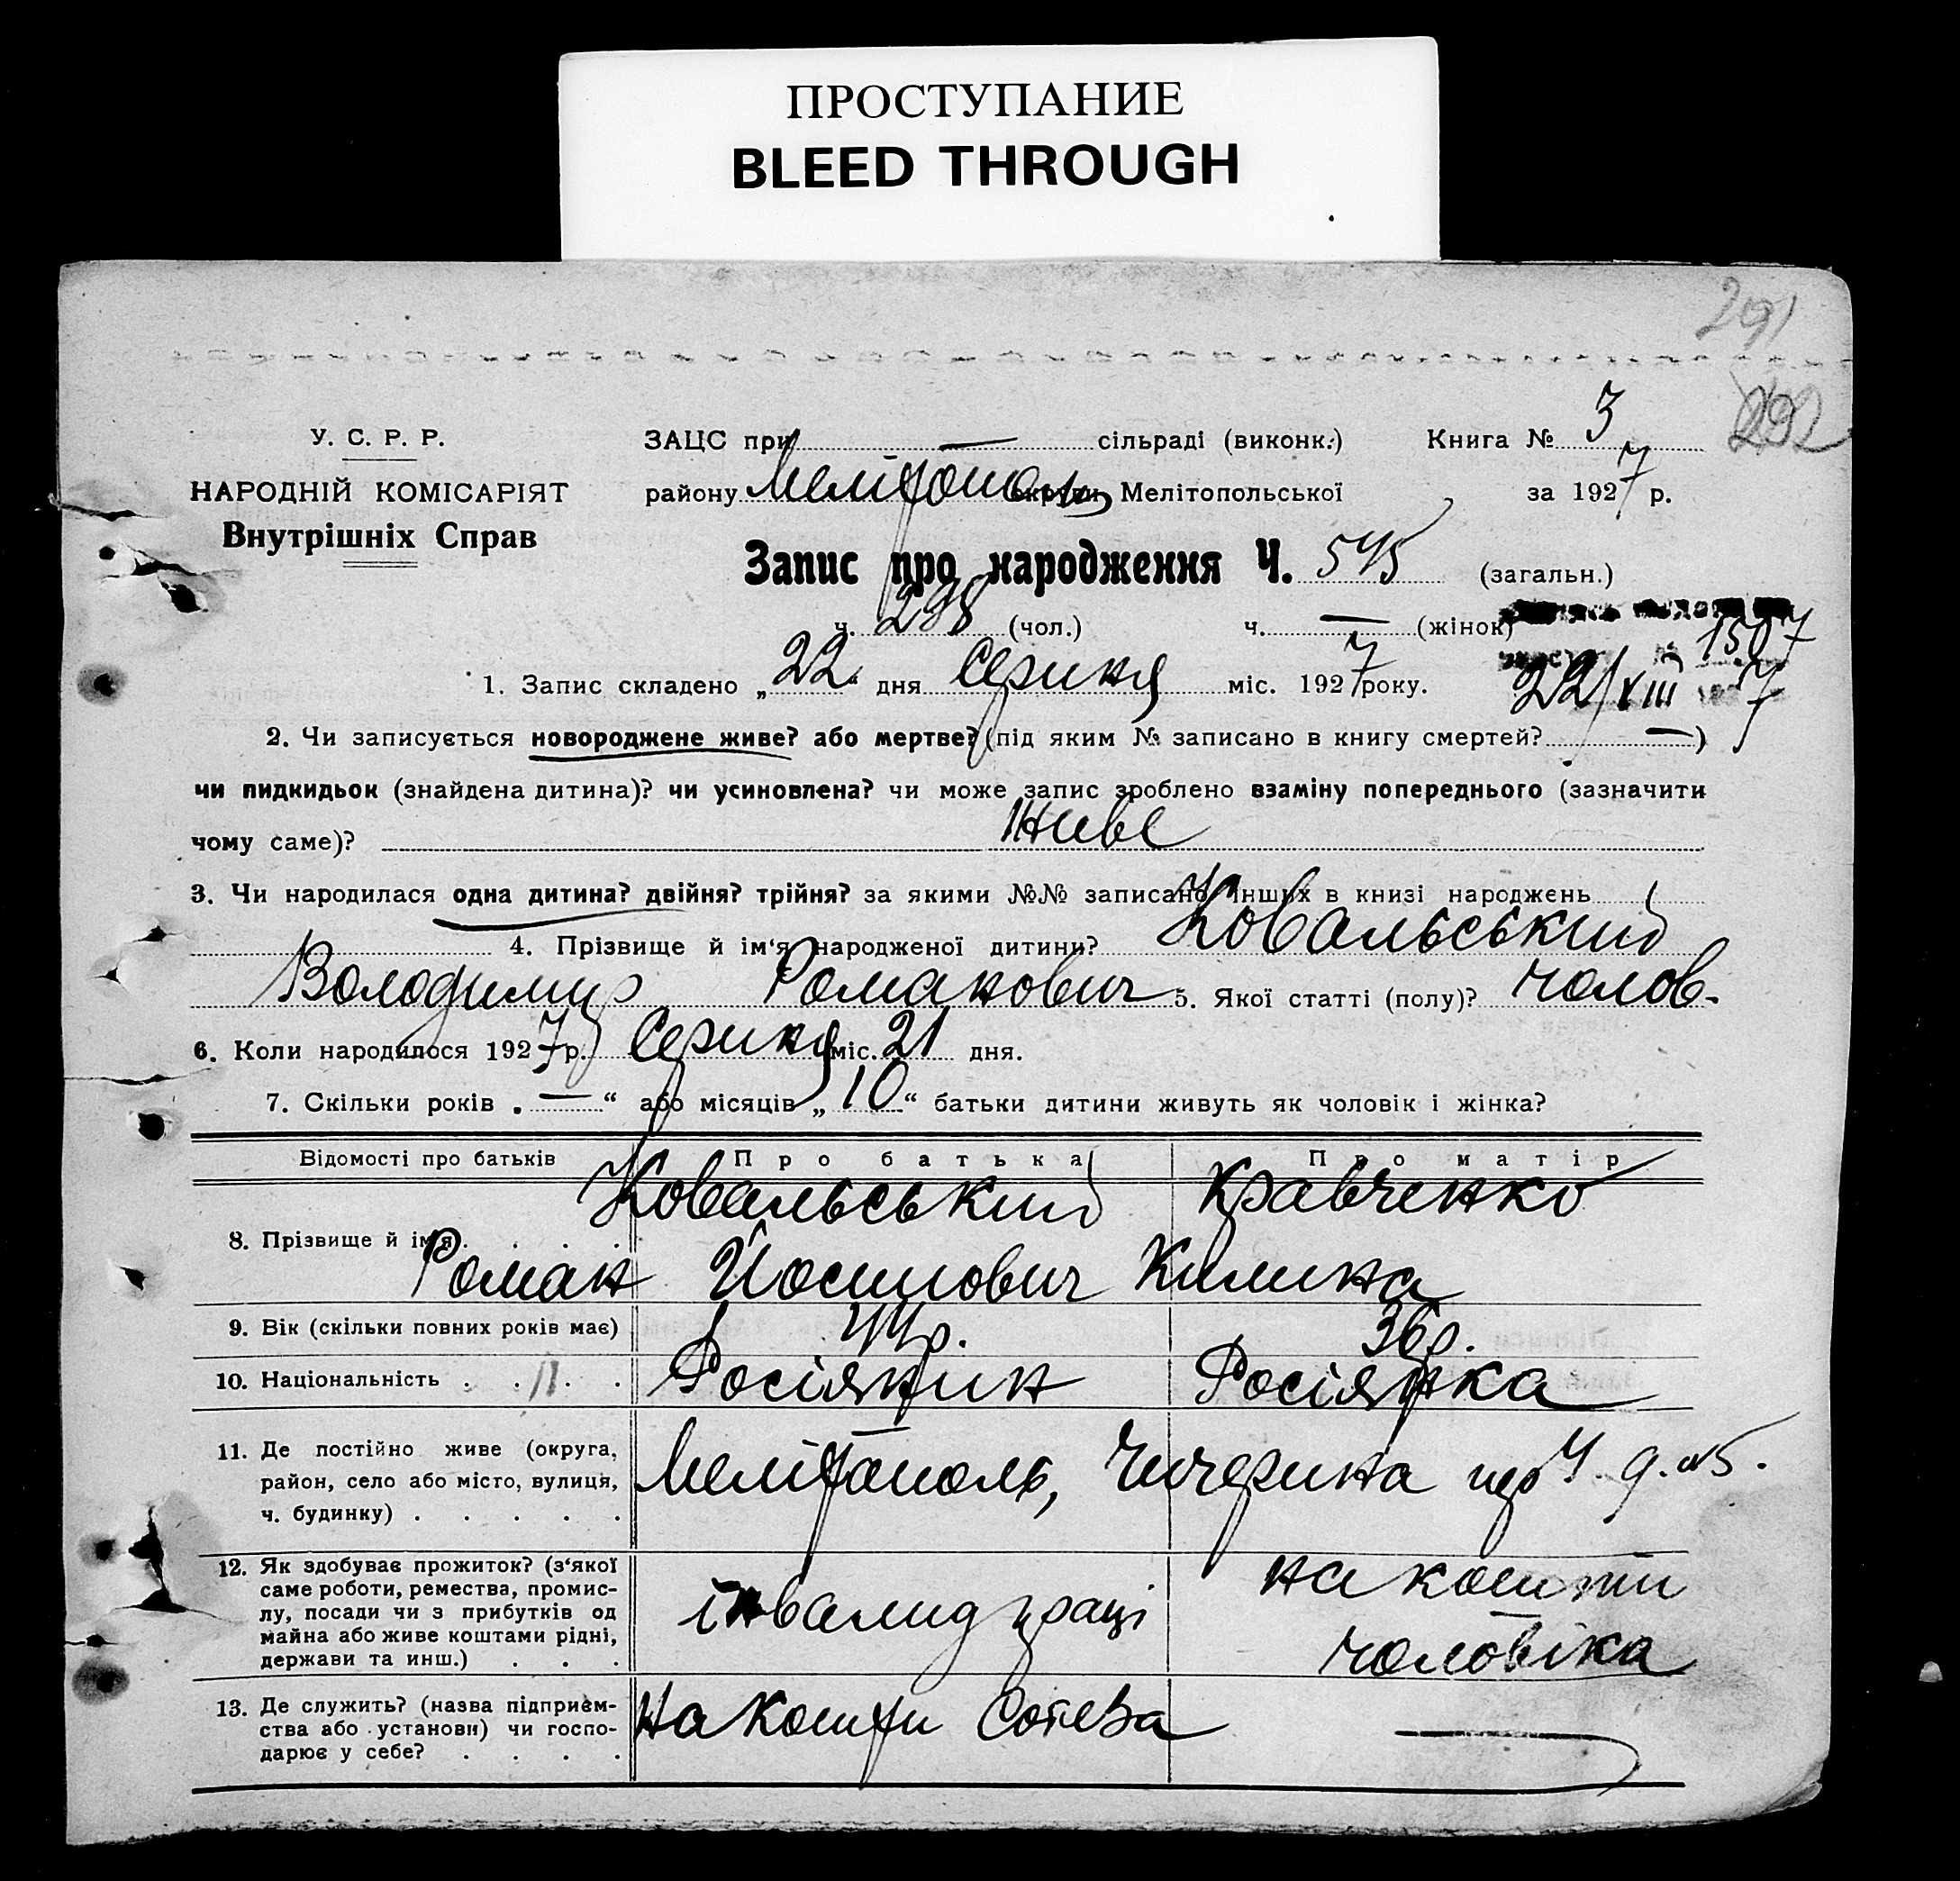 ПРОСТУПАНИЕ
BLEED THROUGH
291
292
У. С. Р. Р.
НАРОДНІЙ КОМІСАРІЯТ
Внутрішніх Справ
ЗАЦС при — сільраді (виконк.) Книга № 3
району Мелітополь округи Мелітопольської за 1927 р.
Запис про народження Ч. 545 (загальн.)
ч. 298 (чол.) ч. — (жінок)
1507
1. Запис складено „22“ дня Серпня міс. 1927 року.
22/VIII 7
2. Чи записується новороджене живе? або мертве? (під яким № записано в книгу смертей? —)
чи пидкидьок (знайдена дитина)? чи усиновлена? чи може запис зроблено взаміну попереднього (зазначити
чому саме)? Живе
3. Чи народилася одна дитина? двійня? трійня? за якими №№ записано інших в книзі народжень
4. Прізвище й ім‘я народженої дитини? Ковальський
Володимир Романович 5. Якої статті (полу)? чолов.
6. Коли народилося 1927 р. Серпня міс. 21 дня.
7. Скільки років „—“ або місяців „10“ батьки дитини живуть як чоловік і жінка?
Відомості про батьків Про батька Про матір
8. Прізвище й ім‘я . . . .
Ковальський Кравченко
Роман Йосипович Килина
9. Вік (скільки повних років має) 44р. 36р.
10. Національність . . . . Росіянин Росіянка
11. Де постійно живе (округа,
район, село або місто, вулиця,
ч. будинку) . . . . .
Мелітополь, Чичерина 4 д. №5.
12. Як здобуває прожиток? (з‘якої
саме роботи, ремества, промис-
лу, посади чи з прибутків од
майна або живе коштами рідні,
держави та инш.) . . .
інвалид праці
на кошти
чоловіка
13. Де служить? (назва підприєм-
ства або установи) чи госпо-
дарює у себе? . . . .
на кошти —